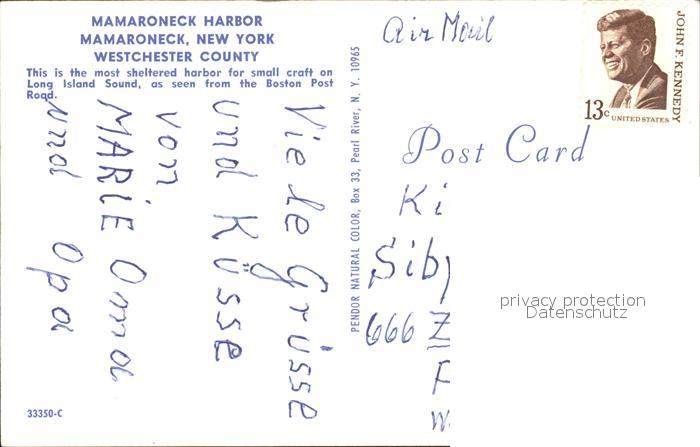 MAMARONECK HARBOR
MAMARONECK, NEW YORK
WESTCHESTER COUNTY
This is the most sheltered harbor for small craft on
Long Island Sound, as seen from the Boston Post
Road.
Viele Grüsse
und Küsse
von
MARiE Oma
und Opa
33350-C
PENDOR NATURAL COLOR, Box 33, Pearl River, N. Y. 10965
Air Mail
JOHN F. KENNEDY
13c UNITED STATES
Post Card
Ki
Sib
666 Z
F
W
privacy protection
Datenschutz